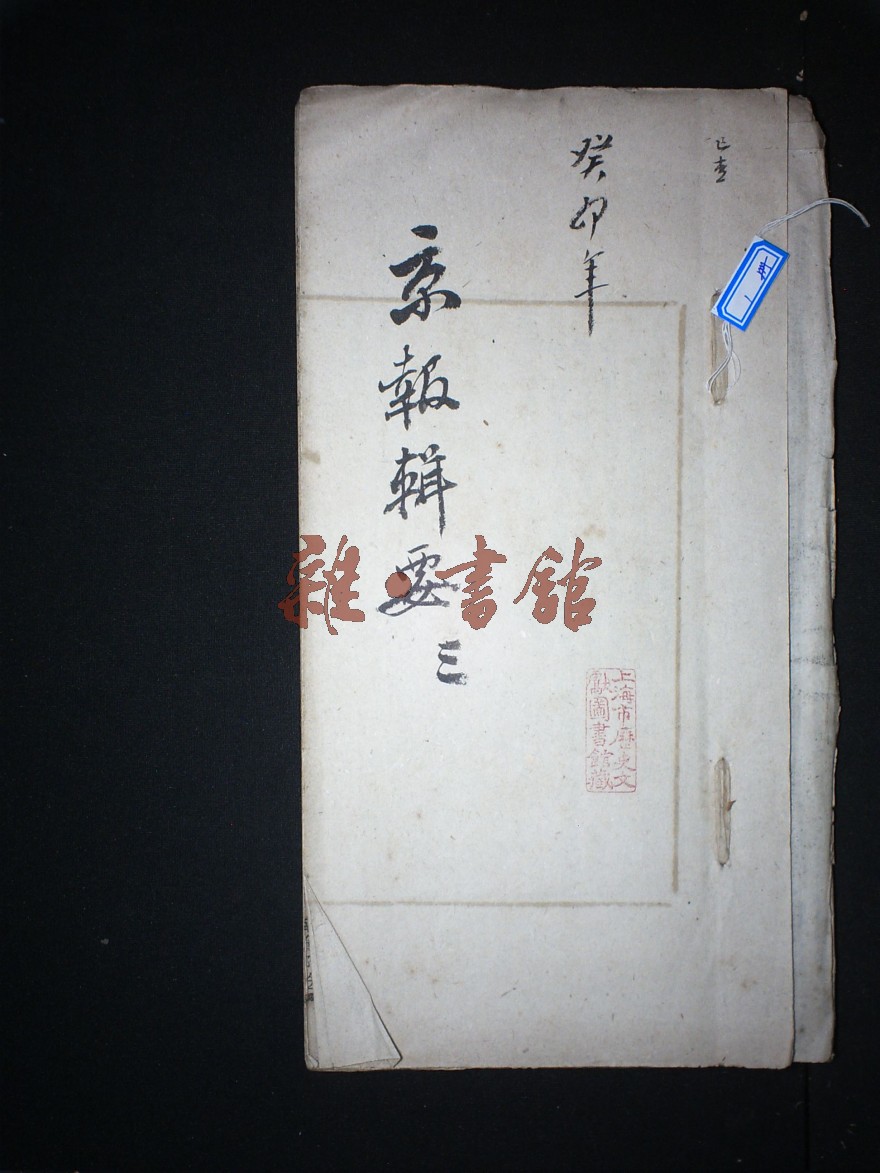 已查
癸卯年
京報輯要 三
上海市歷史文
獻圖書館藏
雜·書館